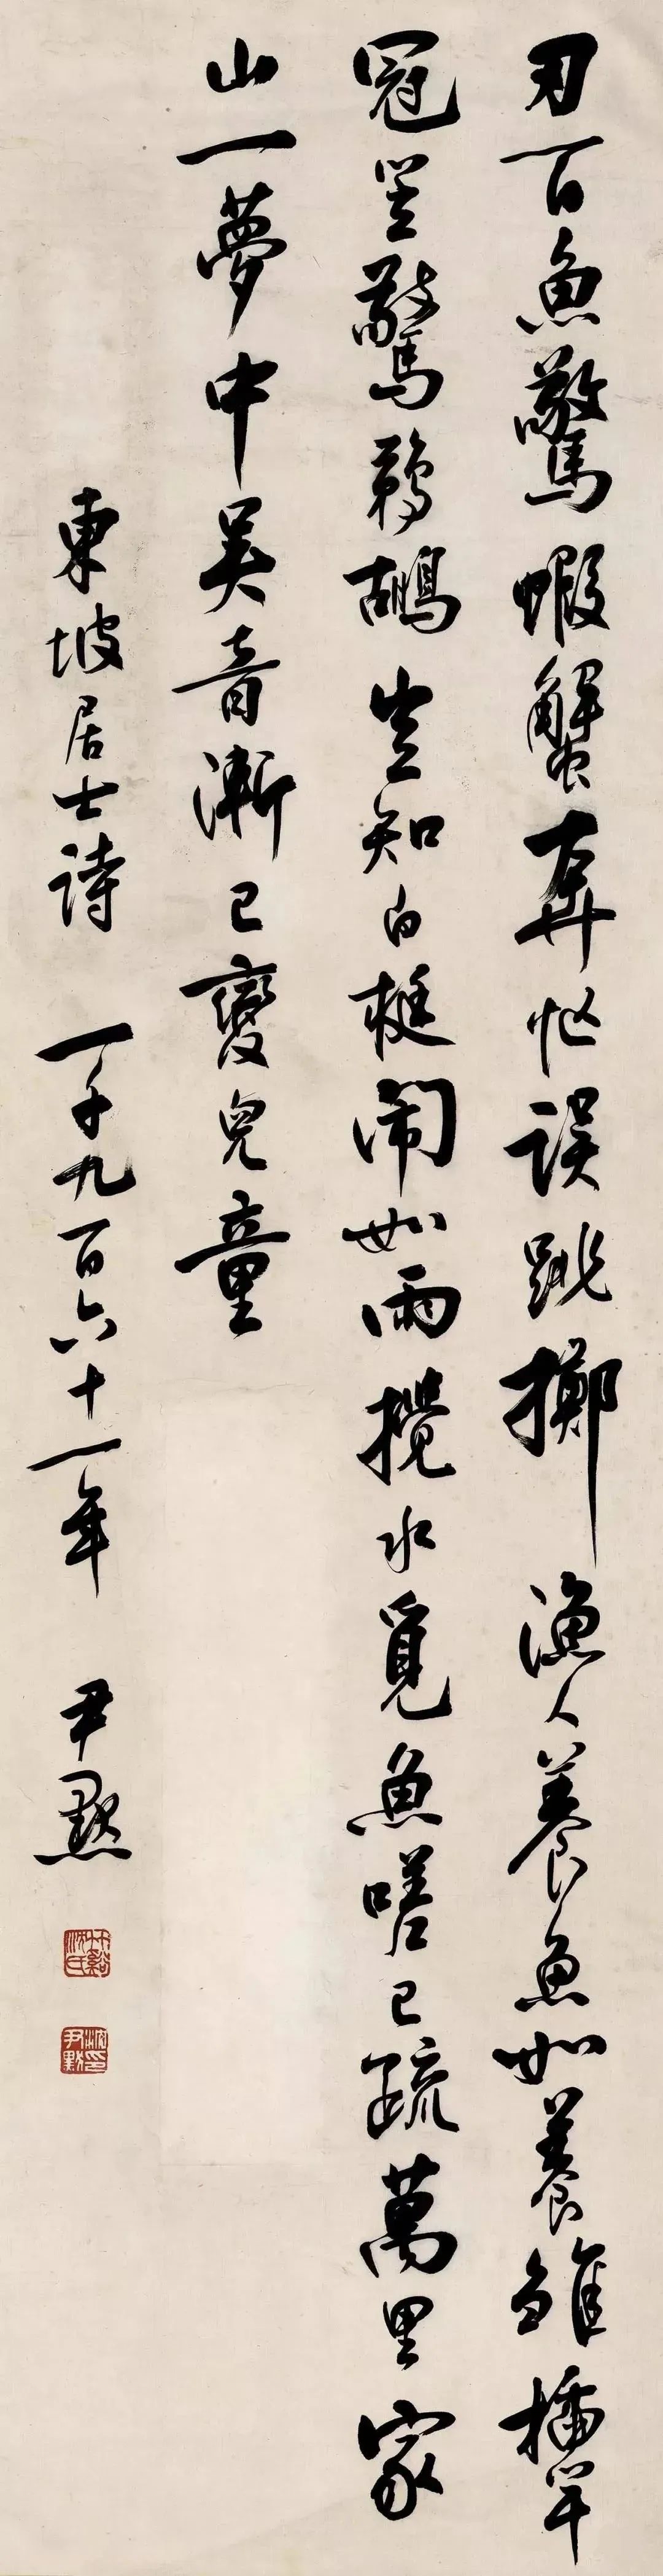 刃百魚驚蝦蟹奔忙誤跳擲漁人養魚如養雛插竿
冠笠驚鵜鶘豈知白梃鬧如雨攪水覓魚嗟已疏萬里家
山一夢中吳音漸已變兒童
東坡居士詩 一千九百六十一年 尹默
竹谿沈氏
沈印尹默